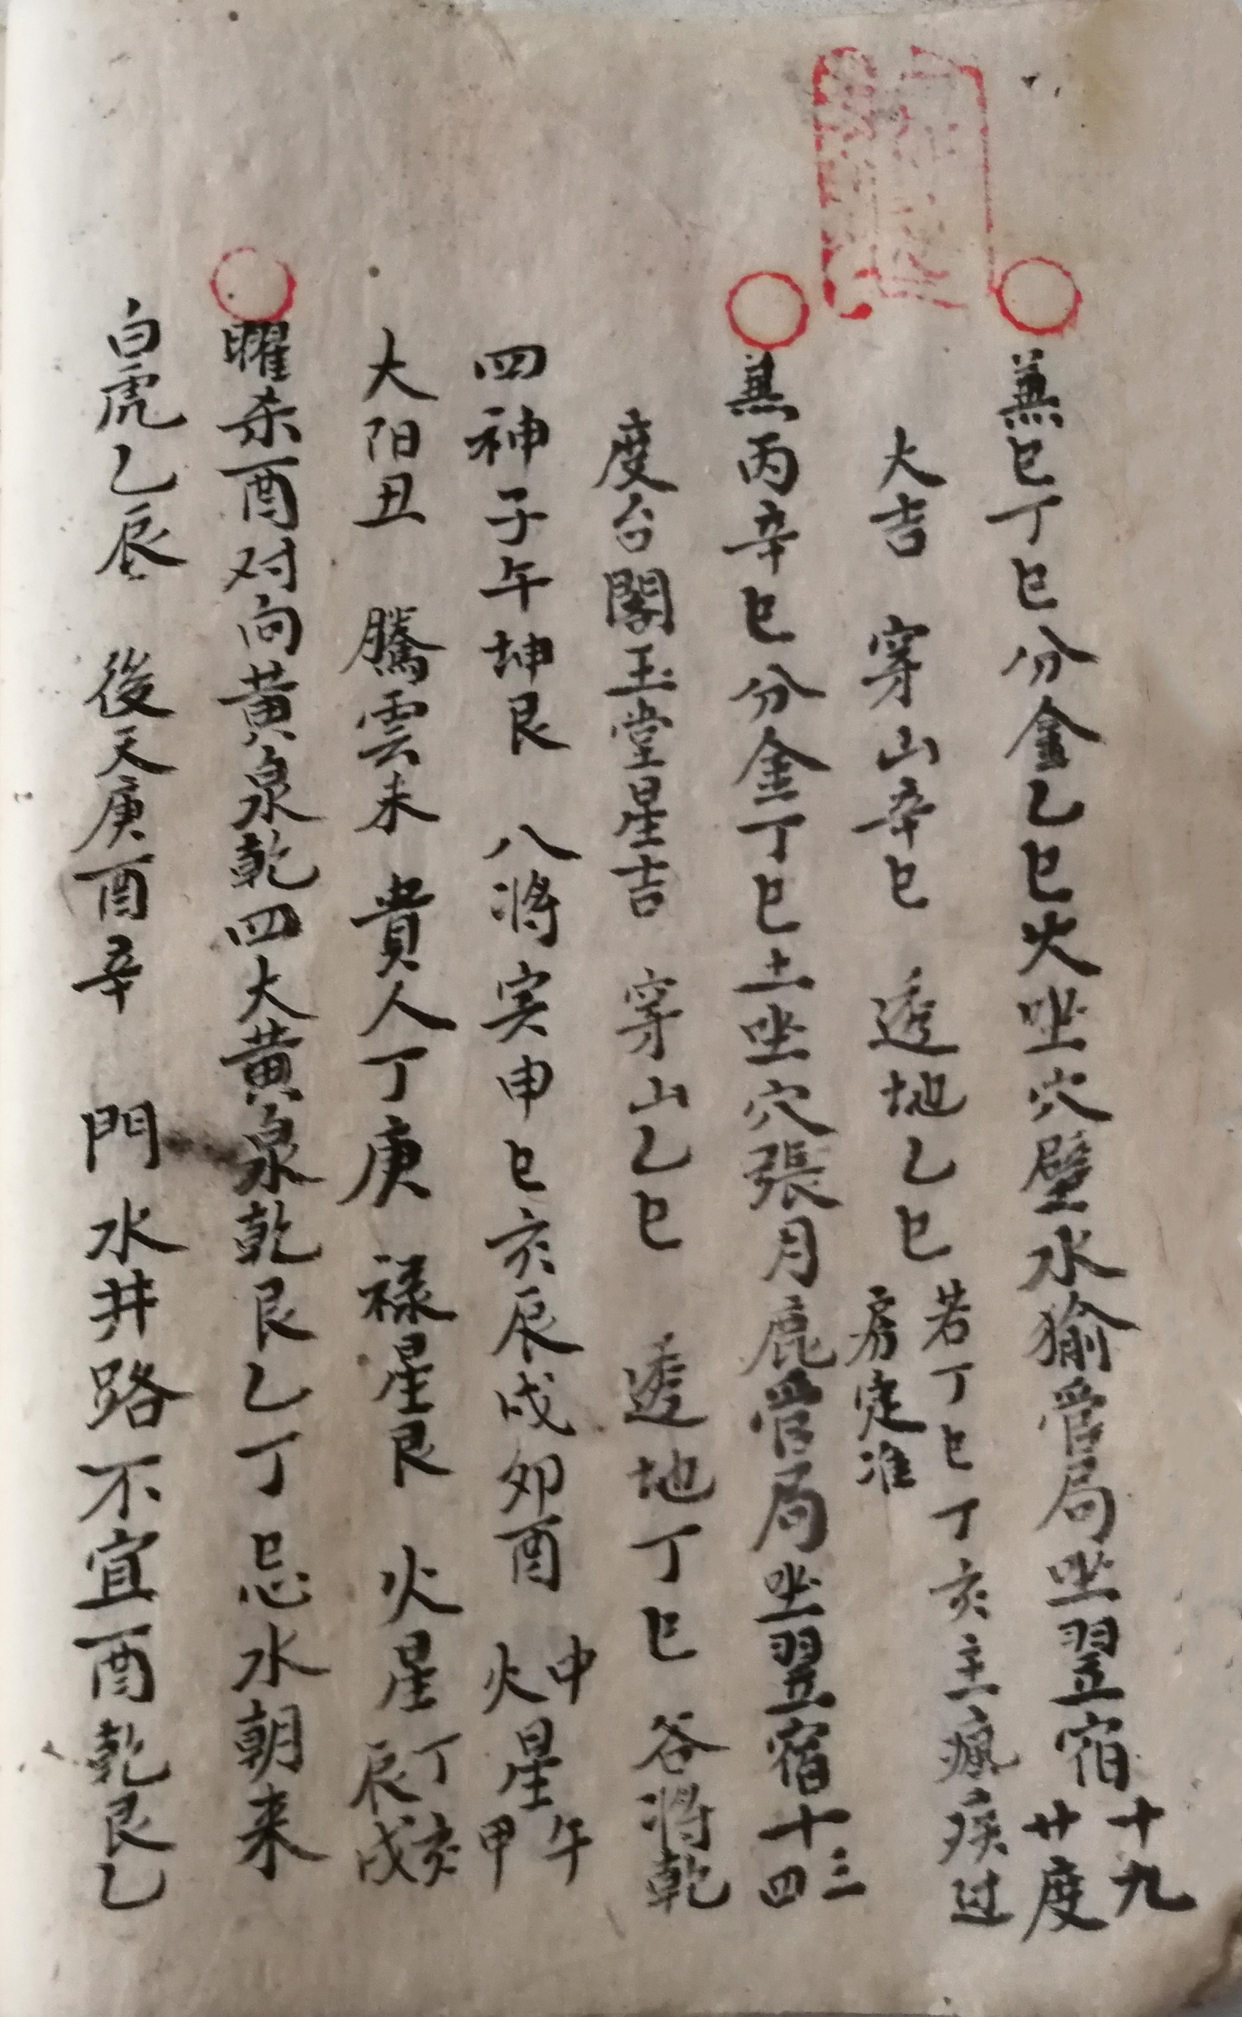 兼巳丁巳分金乙巳火坐穴壁水㺄管局坐翌宿十九廿度
大吉 穿山辛巳 透地乙巳 若丁巳丁亥主瘋疾过房定准
兼丙辛巳分金丁巳土坐穴張月鹿管局坐翌宿十三四
度台閣玉堂星吉 穿山乙巳 透地丁巳 谷將乾
四神子午坤艮 八將寅申巳亥辰戌卯酉 火星申午甲
大阳丑 騰雲未 貴人丁庚 禄星艮 火星丁亥辰戌
曜杀酉对向黄泉乾四大黄泉乾艮乙丁忌水朝来
白虎乙辰 後天庚酉辛 門水井路不宜酉乾艮乙